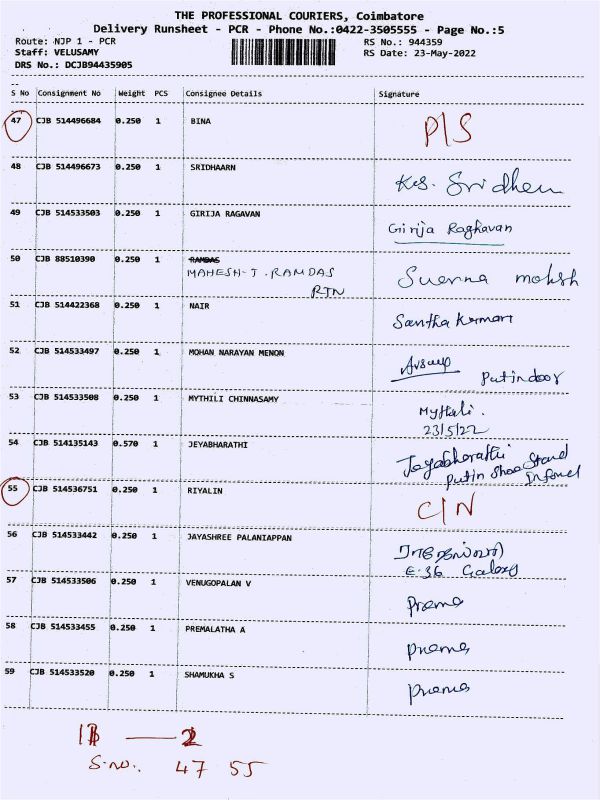 THE PROFESSIONAL COURIERS, Coimbatore
Delivery Runsheet - PCR - Phone No.:0422-3505555 - Page No.:5
Route: NJP 1 - PCR RS No.: 944359
Staff: VELUSAMY RS Date: 23-May-2022
DRS No.: DCJB94435905
S No Consignment No Weight PCS Consignee Details Signature
47 CJB 514496684 0.250 1 BINA P/S
48 CJB 514496673 0.250 1 SRIDHAARN K.S. Sridhen
49 CJB 514533503 0.250 1 GIRIJA RAGAVAN Girija Raghavan
50 CJB 88510390 0.250 1 RAMDAS
MAHESH-J. RAMDAS moksh
RTN
51 CJB 514422368 0.250 1 NAIR Santha Kumari
52 CJB 514533497 0.250 1 MOHAN NARAYAN MENON
Put in door
53 CJB 514533508 0.250 1 MYTHILI CHINNASAMY Mythili.
23/5/22
54 CJB 514135143 0.570 1 JEYABHARATHI Jayabharathi
Putin Shoe Stand
55 CJB 514536751 0.250 1 RIYALIN C/N
56 CJB 514533442 0.250 1 JAYASHREE PALANIAPPAN
E-36 Galaxy
57 CJB 514533506 0.250 1 VENUGOPALAN V Prema
58 CJB 514533455 0.250 1 PREMALATHA A Prema
59 CJB 514533520 0.250 1 SHAMUKHA S Prema
2
S.no. 47 55